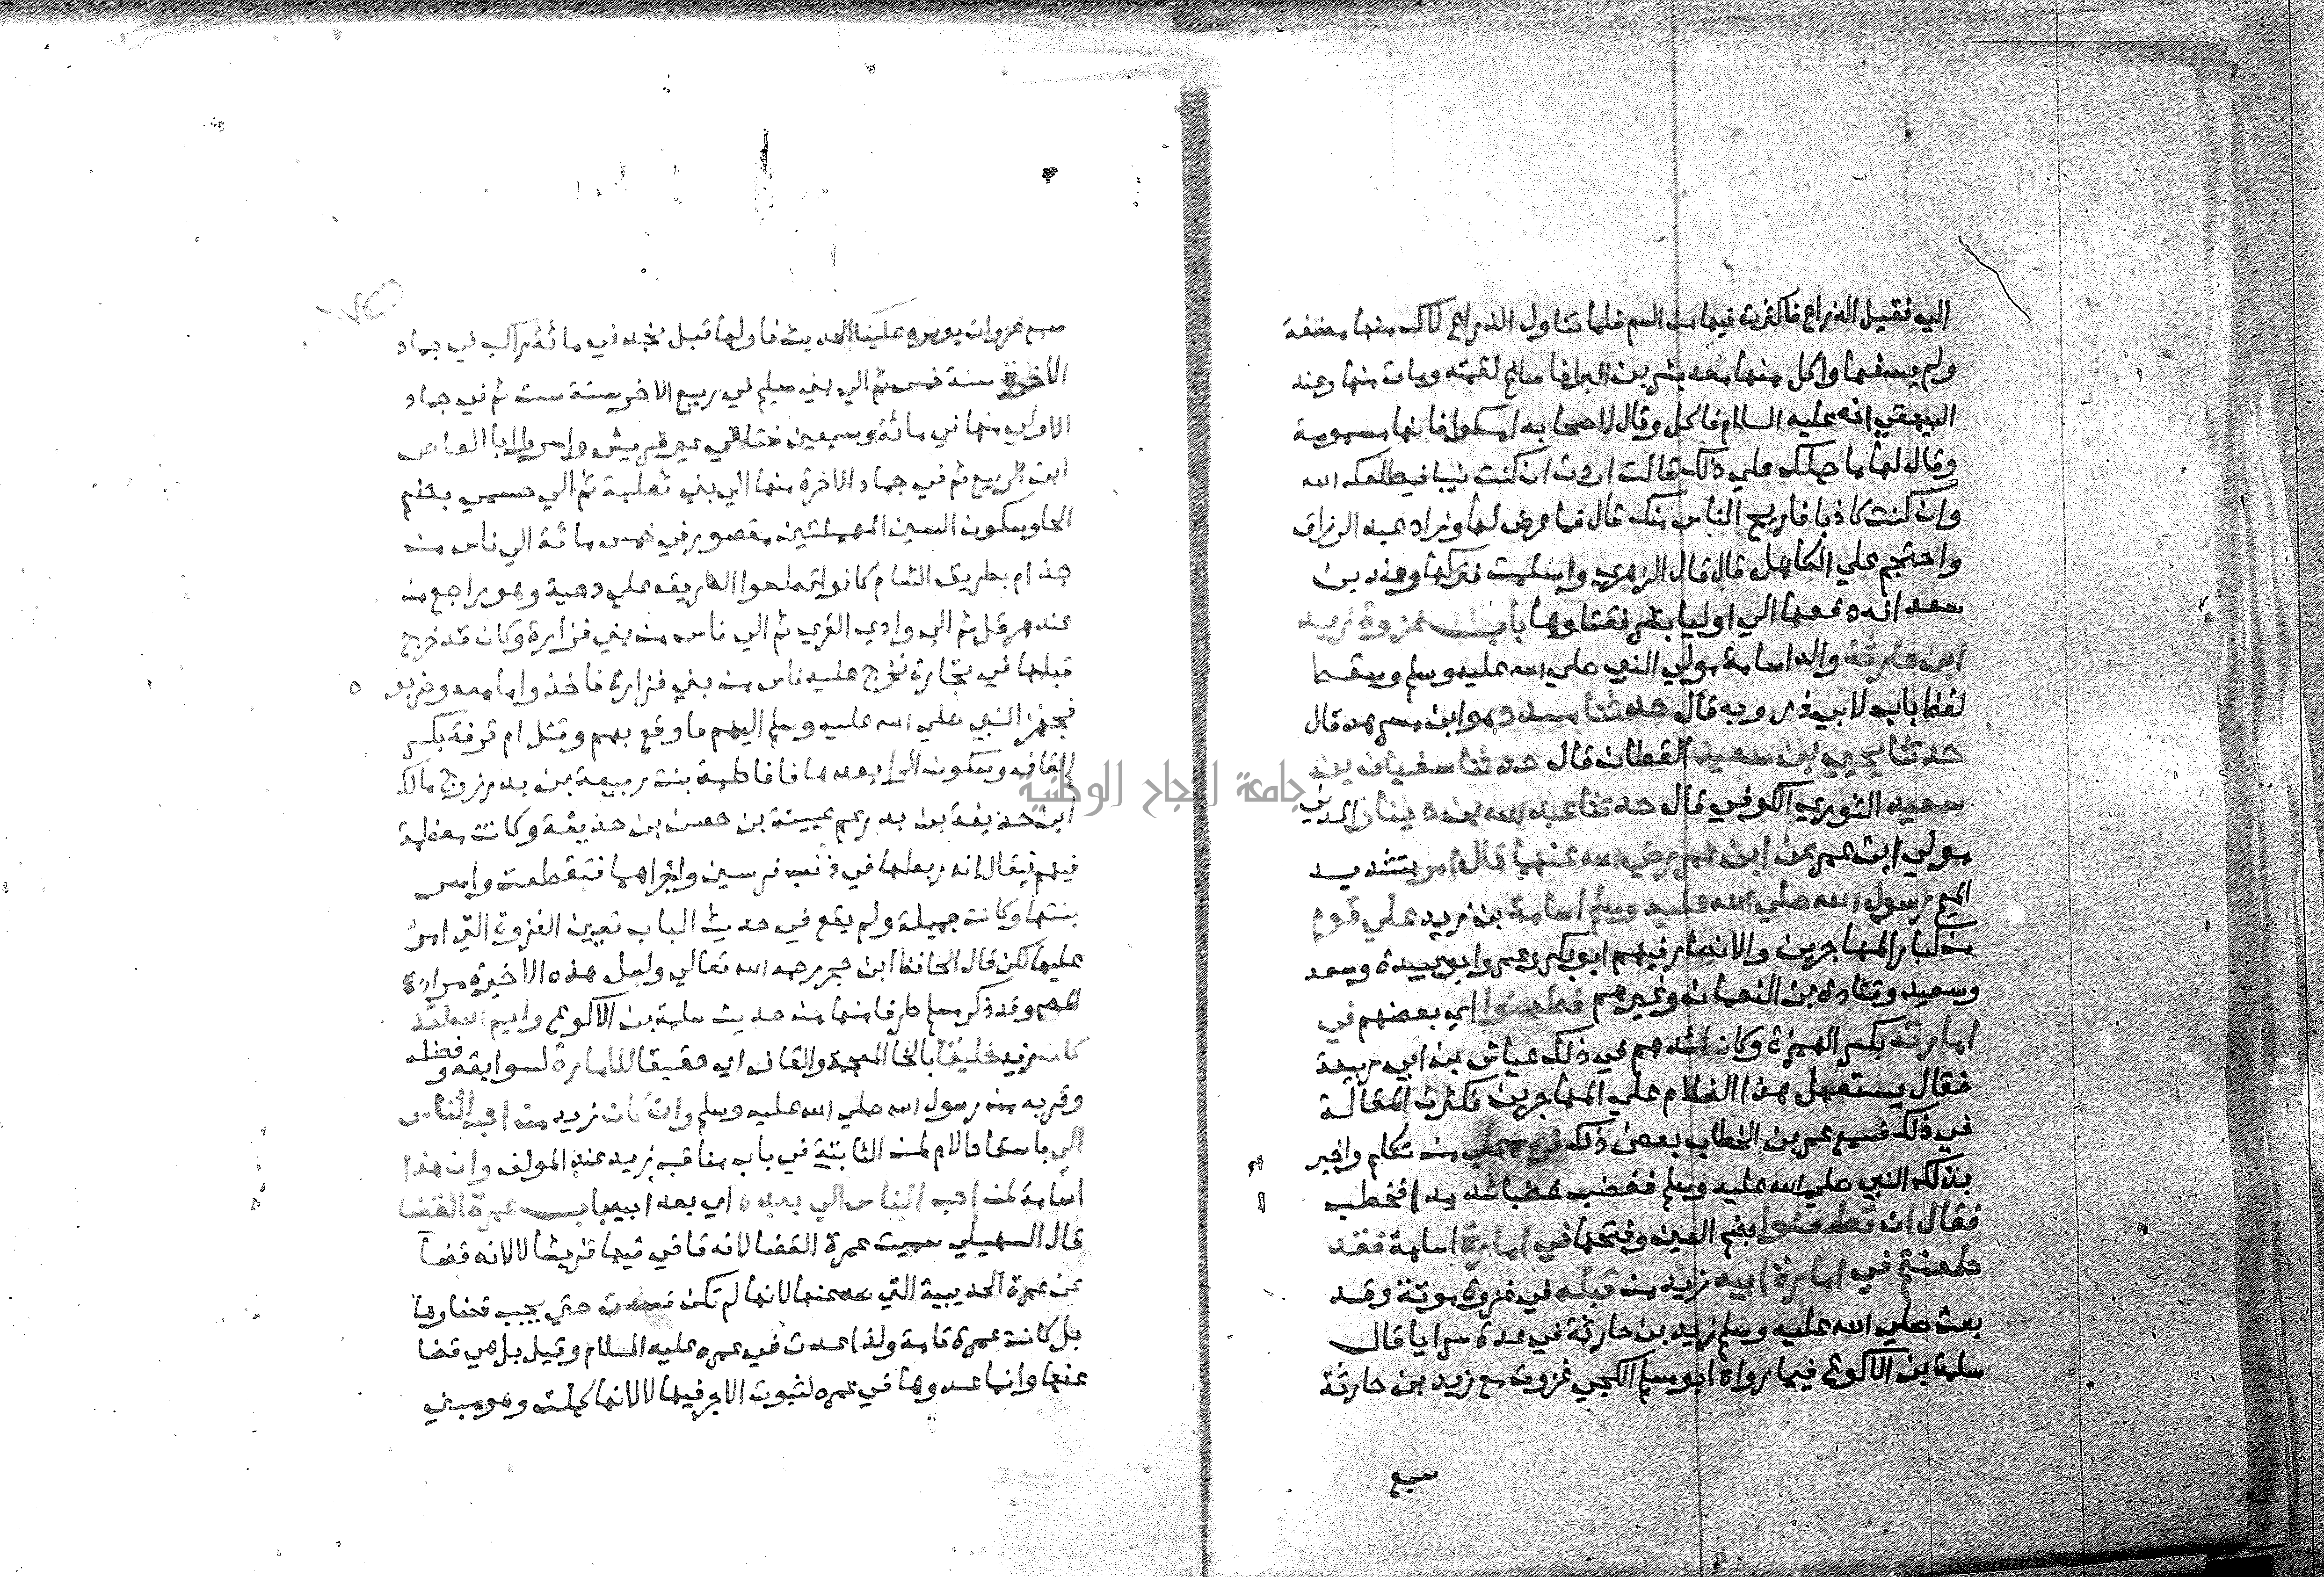 اليه فقيل الذراع فاكثرت فيها من السم فلما تناول الذراع لاك منها مضغة
ولم يسغها واكل منها معه بشر بن البرا فاساغ لقمته ومات منها وعند
البيهقي انه عليه السلام فاكل وقال لاصحابه امسكوا فانها مسمومة
وقال لها ما حملك علي ذلك قالت اردت ان كنت نبيا فيطلعك الله
وان كنت كاذبا فاريح الناس منك قال فما عرض لها وزاد عبد الرزاق
واحتجم علي الكاهل قال قال الزهري واسلمت فتركها وعند بن
سعد انه دفعها الي اوليا بشر فقتلوها باب غزوة زيد
ابن حارثة والد اسامة مولي النبي صلي الله عليه وسلم وسقط
لفظ باب لابي ذر وبه قال حدثنا مسدد هو ابن مسرهد قال
حدثنا يحيي بن سعيد القطان قال حدثنا سفيان بن
سعيد الثوري الكوفي قال حدثنا عبد الله بن دينار المدني
مولي ابن عمر عن ابن عمر رضي الله عنهما قال امر بتشديد
الميم رسول الله صلي الله عليه وسلم اسامة بن زيد علي قوم
من كبار المهاجرين والانصار فيهم ابو بكر وعمر وابو عبيدة وسعد
وسعيد وقتادة بن النعمان وغيرهم فطعنوا اي بعضهم في
امارته بكسر الهمزة وكان اشدهم في ذلك عياش بن ابي ربيعة
فقال يستعمل هذا الغلام علي المهاجرين فكثرت المقالة
في ذلك فسمع عمر بن الخطاب بعض ذلك فرده علي من تكلم واخبر
بذلك النبي صلي الله عليه وسلم فغضب غضبا شديدا فخطب
فقال ان تطعنوا بضم العين وفتحها في امارة اسامة فقد
طعنتم في امارة ابيه زيد من قبله في غزوة موتة وقد
بعث صلي الله عليه وسلم زيد بن حارثة في عدة سرايا قال
سلمة بن الاكوع فيما رواه ابو مسلم الكجي غزوت مع زيد بن حارثة
سبع
سبع غزوات يومره علينا الحديث فاولها قبل نجد في مائة راكب في جماد
الاخرة سنة خمس ثم الي بني سليم في ربيع الاخر سنة ست ثم في جماد
الاولي منها في مائة وسبعين فتلقي عير قريش واسروا ابا العاص
ابن الربيع ثم في جماد الاخرة منها الي بني ثعلبة ثم الي حسمي بضم
الحا وسكون السين المهملتين مقصور في خمس مائة الي ناس من
جذام بطريق الشام كانوا قطعوا الطريق علي دحية وهو راجع من
عند هرقل ثم الي وادي القري ثم الي ناس من بني فزارة وكان قد خرج
قبلها في تجارة فخرج عليه ناس من بني فزارة فاخذوا ما معه وضربوه
فجهزه النبي صلي الله عليه وسلم اليهم فاوقع بهم وقتل ام قرفة بكسر
القاف وسكون الرا بعدها فا فاطمة بنت ربيعة بن بدر زوج مالك
ابن حذيفة بن بدر عم عيينة بن حصن بن حذيفة وكانت معظمة
فيهم فيقال انه ربطها في ذنب فرسين واجراهما فتقطعت واسر
بنتها وكانت جميلة ولم يقع في حديث الباب تعيين الغزوة التي امر
عليها لكن قال الحافظ ابن حجر رحمه الله تعالي ولعل هذه الاخيرة مراد
المص وقد ذكر مسلم طرفا منها من حديث سلمة بن الاكوع وايم الله لقد
كان زيد خليقا بالخا المعجمة والقاف اي حقيقا للامارة لسوابقه وفضله
وقربه من رسول الله صلي الله عليه وسلم وان كان زيد من احب الناس
الي باسقاط لام لمن الثابتة في باب مناقب زيد عند المولف وان هذا
اسامة لمن احب الناس الي بعده اي بعد ابيه باب عمرة القضا
قال السهيلي سميت عمرة القضا لانه قاضي فيها قريشا لا لانه قضا
عن عمرة الحديبية التي صد عنها لانها لم تكن فسدت حتي يجب قضاوها
بل كانت عمرة تامة ولذا عدت في عمره عليه السلام وقيل بل هي قضا
عنها وانما عدوها في عمره لثبوت الاجر فيها لا لانها كملت وهو مبني
جامعة النجاح الوطنية